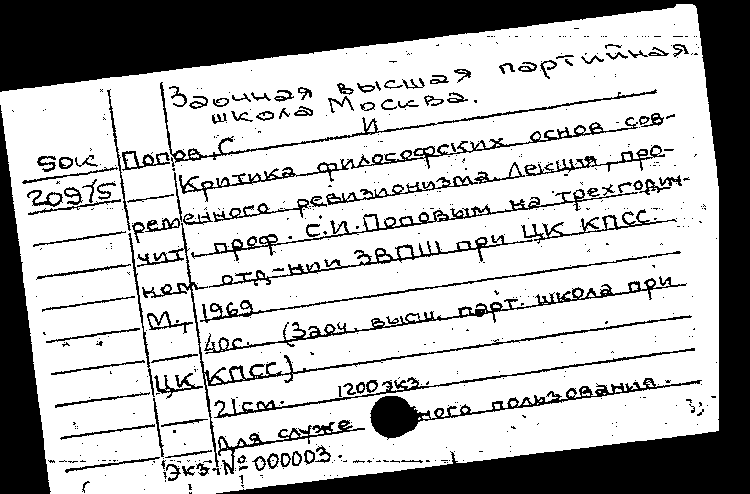 Заочная высшая партийная
школа Москва.
И
50К Попов, С
209/5 Критика философских основ сов-
ременного ревизионизма. Лекция, про-
чит. проф. С.И. Поповым на трехгодич-
ном отд-нии ЗВПШ при ЦК КПСС.
М., 1969.
40с. (Заоч. высш. парт. школа при
ЦК КПСС).
21см. 1200 экз.
Для служе ного пользования.
Экз. № 000003.